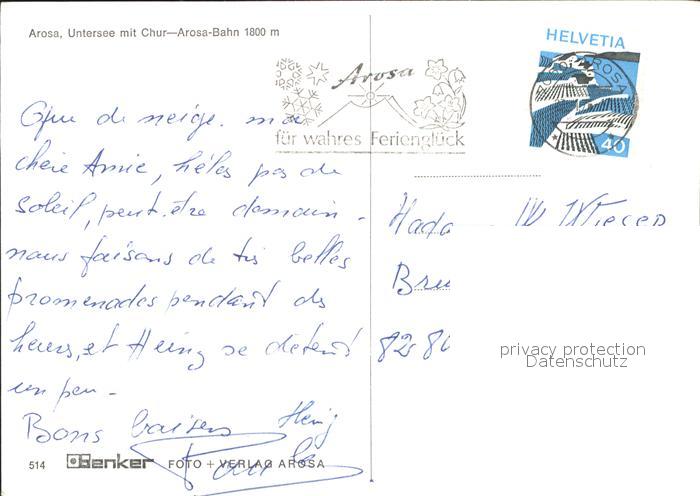 Arosa, Untersee mit Chur—Arosa-Bahn 1800 m
HELVETIA
AROSA
40
Arosa
für wahres Ferienglück
Que de neige. ma
chère Amie, hélas pas de
soleil, peut-être demain -
nous faisons de très belles
promenades pendant des
heures, et Heinz se détend
un peu -
Bons baisers Heinz
514 Benker FOTO + VERLAG AROSA
Mada
Bru
8280
privacy protection
Datenschutz